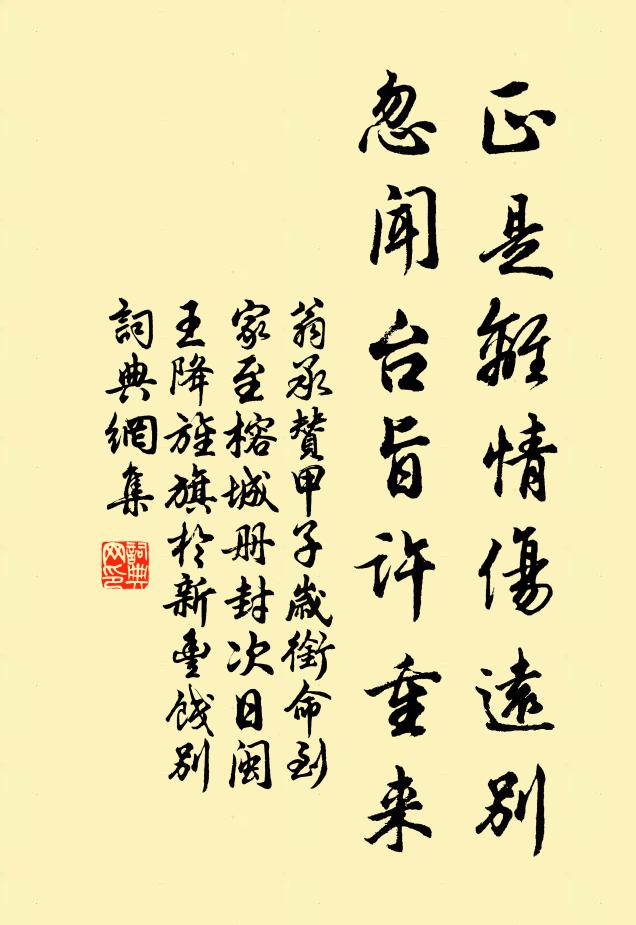 正是離情傷遠別
忽聞台旨許重来
翁承贊甲子歲銜命到
家至榕城册封次日閩
王降旌旗於新豊餞別
詞典網集
詞典
网印